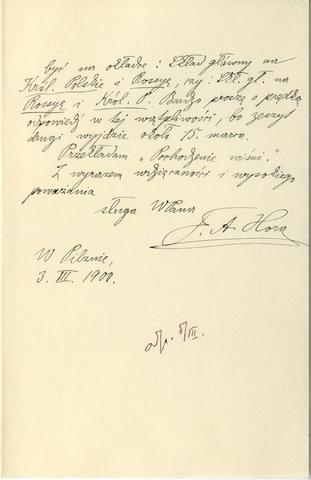 być na okładce: Skład główny na
Król. Polskie i Rosyę, czy: Skł. gł. na
Rosyę i Król. P. Bardzo proszę o prędką
odpowiedź w tej wątpliwości, bo zeszyt
drugi wyjdzie około 15. marca.
Przekładam „Pochodzenie wiśni."
Z wyrazem wdzięczności i wysokiego
poważania
sługa WPana
F. A. Hora
W Pilznie,
3. III. 1900.
odp. 5/III.